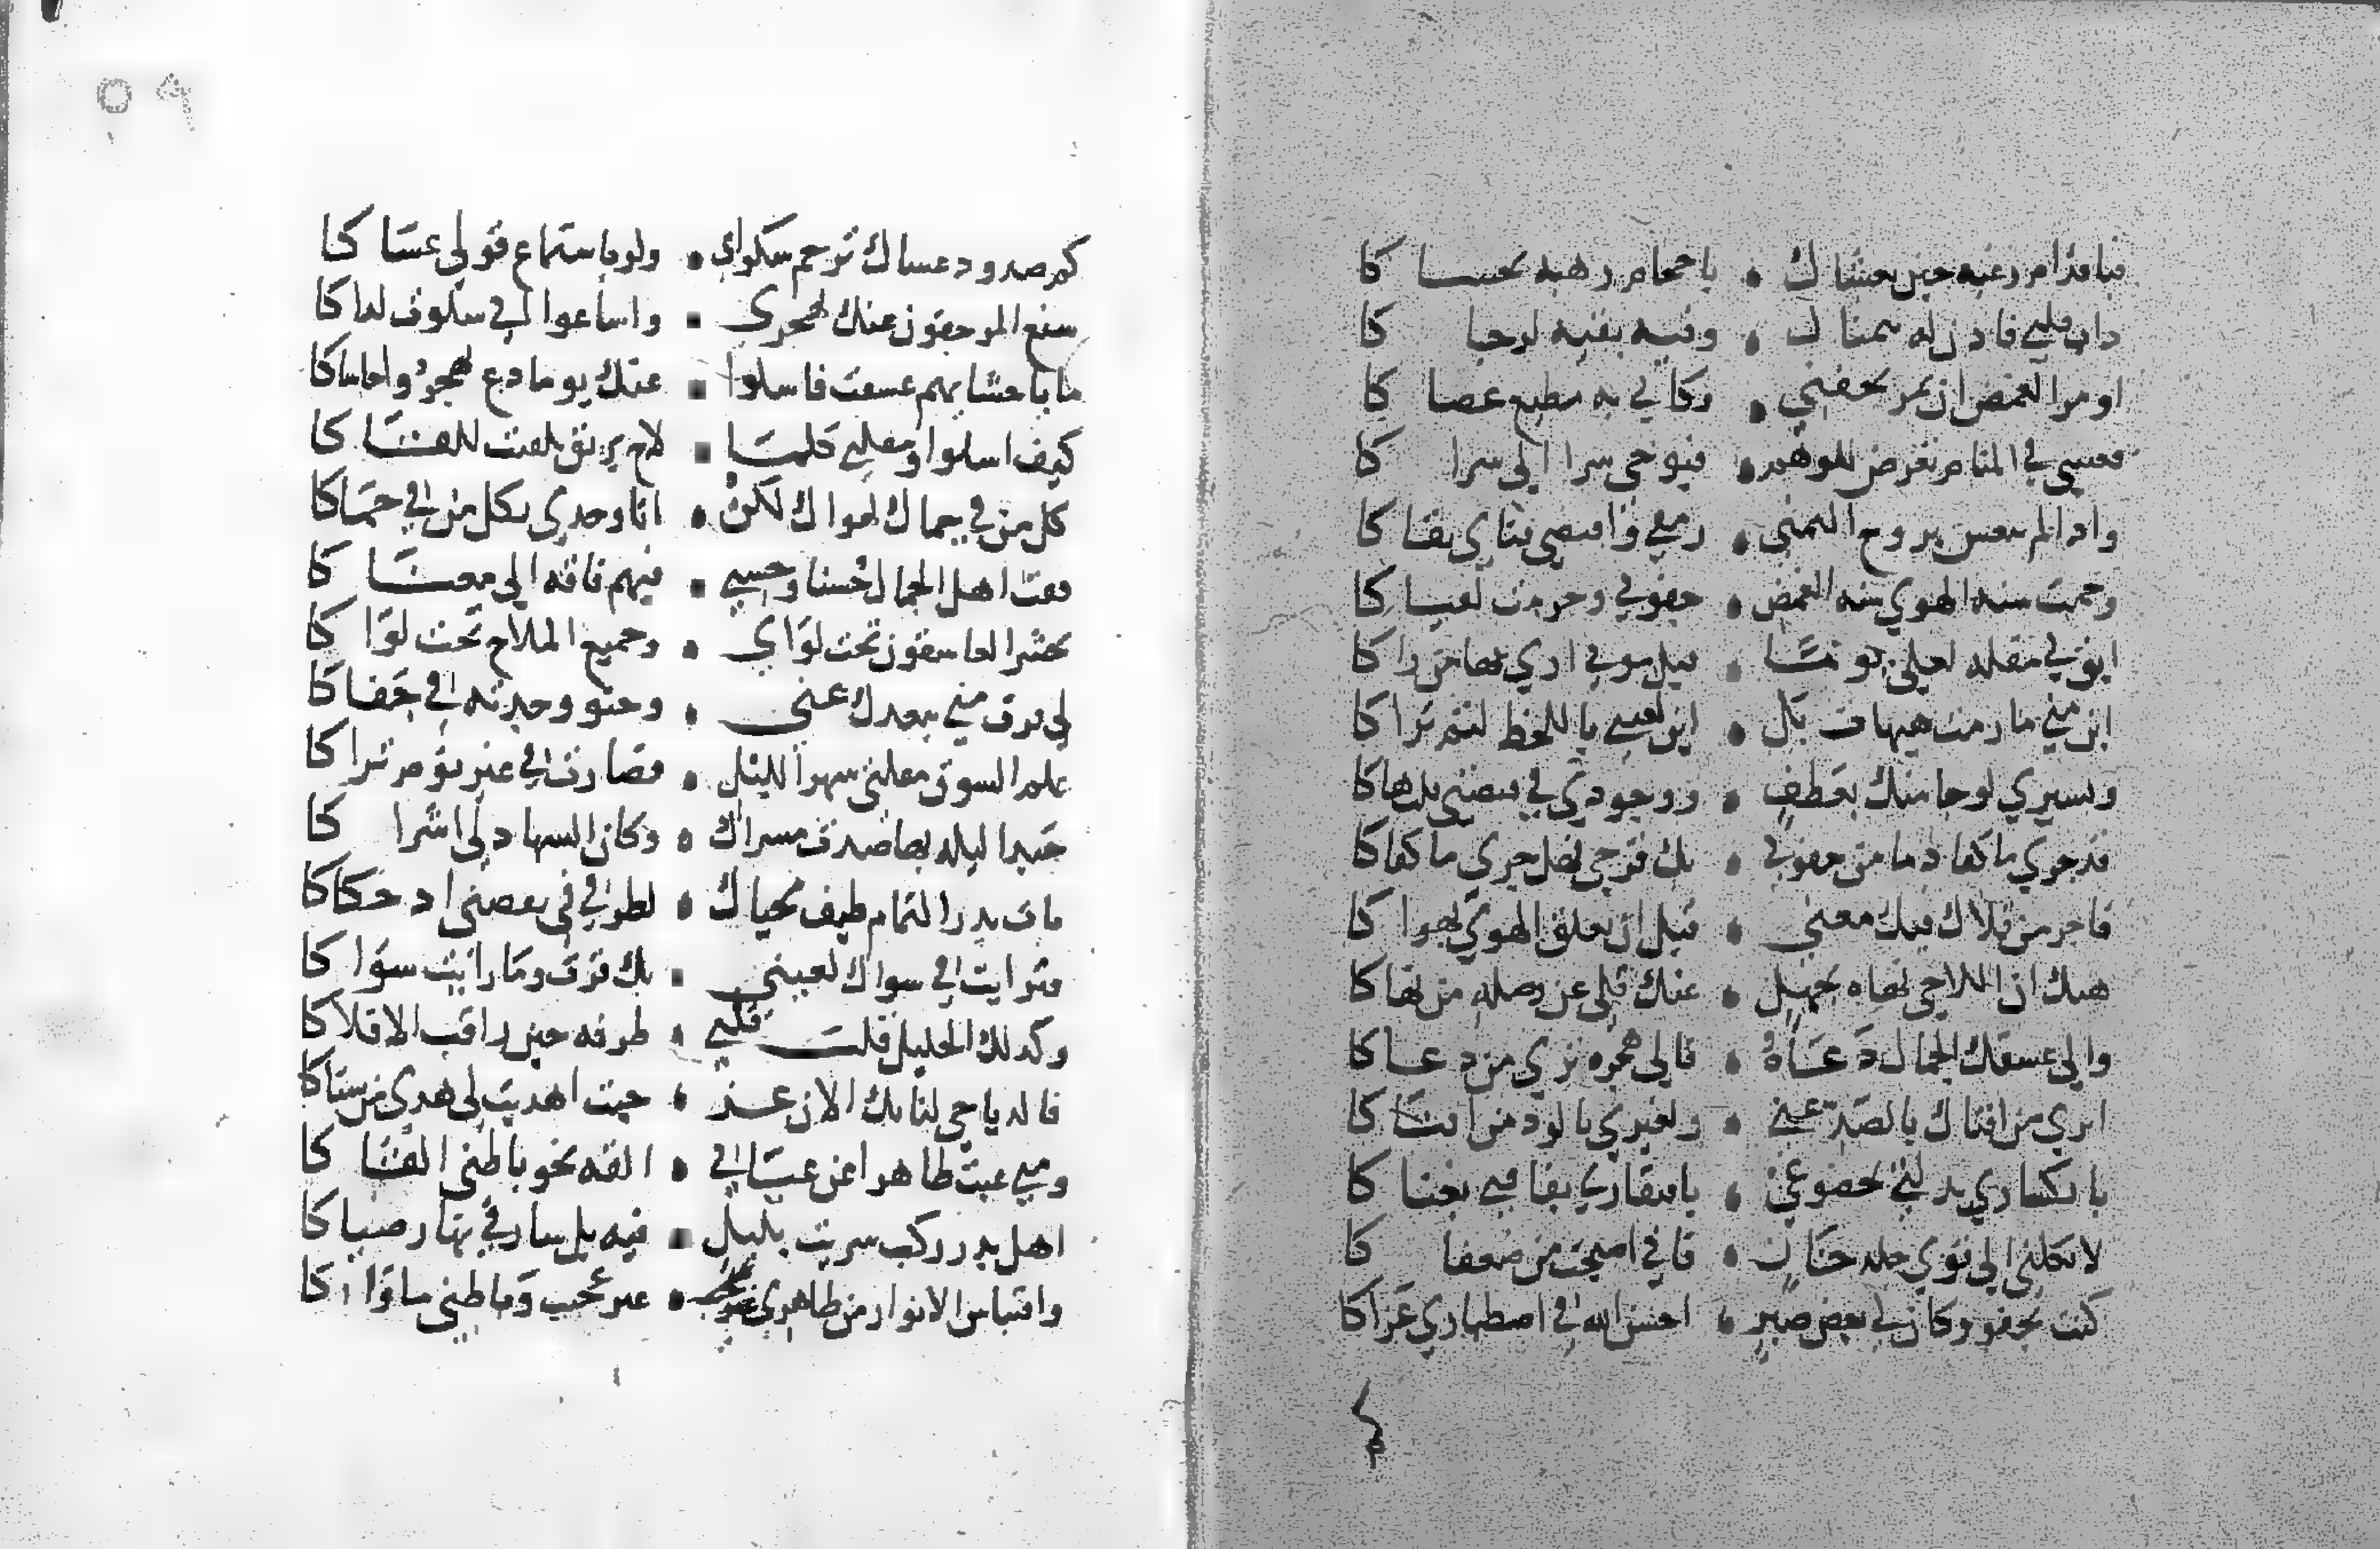 فباقدام رغبة حين يغشاك • باحجام رهبة يخشاكا
ذاب قلبي فاذن له يتمناك • وفيه بقية لرجاكا
او مر الغمض ان يمر بجفني • وكاني به مطيع عصاكا
فعسي في المنام يعرض للوهم • فيوحي سرا الي سراكا
واذا لم تنعش بروح التمني • رمقي واقتضي فناي بقاكا
وحمت سنه الهوي سنه الغمض • جفوني وحرمت لقياكا
ابق لي مقله لعلي يوما • قبل موتي اري بها من راكا
اين مني ما رمت هيهات بل • اين لعيني باللحظ لثم تراكا
وبشيري لو جا منك بعطف • ووجودي في قبضتي قلت هاكا
قد جري ما كفا دما من جفوني • بك قرحي فهل جري ما كفاكا
فاجر من قلاك فيك معني • قبل ان يعلق الهوي يهواكا
هبك ان اللاحي نهاه بجهل • عنك قلي عن وصله من نهاكا
والي عشقك الجمال دعاه • فالي هجره تري من دعاكا
اتري من افتاك بالصد عني • ولغيري بالود من افتاكا
بانكساري بذلتي بخضوعي • بافتقاري بفاقتي بغناكا
لا تكلني الي قوي جلد خان • فاني اصبحت من ضعفاكا
كنت تجفو وكان لي بعض صبر • احسن الله في اصطباري عزاكا
كم
كم صدود عساك ترحم شكواي • ولو باستماع قولي عساكا
شنع المرجفون عنك بهجري • واشاعوا اني سلوت هواكا
ما باحشايهم عشقت فاسلوا • عنك يوما دع يهجروا حاشاكا
كيف اسلوا ومقلتي كلما • لاح بريق تلفتت للقاكا
كل من في حماك يهواك لكن • انا وحدي بكل من في حماكا
فقت اهل الجمال حسنا وحسني • فبهم فاقه الي معناكا
يحشر العاشقون تحت لواي • وجميع الملاح تحت لواكا
لي قرب مني ببعدك عني • وحنو وجدته في جفاكا
علم الشوق مقلتي سهر الليل • فصارت في غير نوم تراكا
حبذا ليله بها صدت مسراك • وكان السهاد لي اشراكا
بات بدر التمام طيف محياك • لطرفي في يقظتي اذ حكاكا
فترايت في سواك لعيني • بك قرت وما رايت سواكا
وكذلك الخليل قلب قلبي • طرفه حين راقب الافلاكا
فالدياجي لنا بك الان غر • حيث اهديت لي هدي من سناكا
ومتي غبت ظاهرا عن عياني • الفه نحو باطني القاكا
اهل بدر ركب سريت بليل • فيه بل سار في نهار ضياكا
واقتباس الانوار من ظاهري غير • عجيب وباطني ماواكا
٥٩